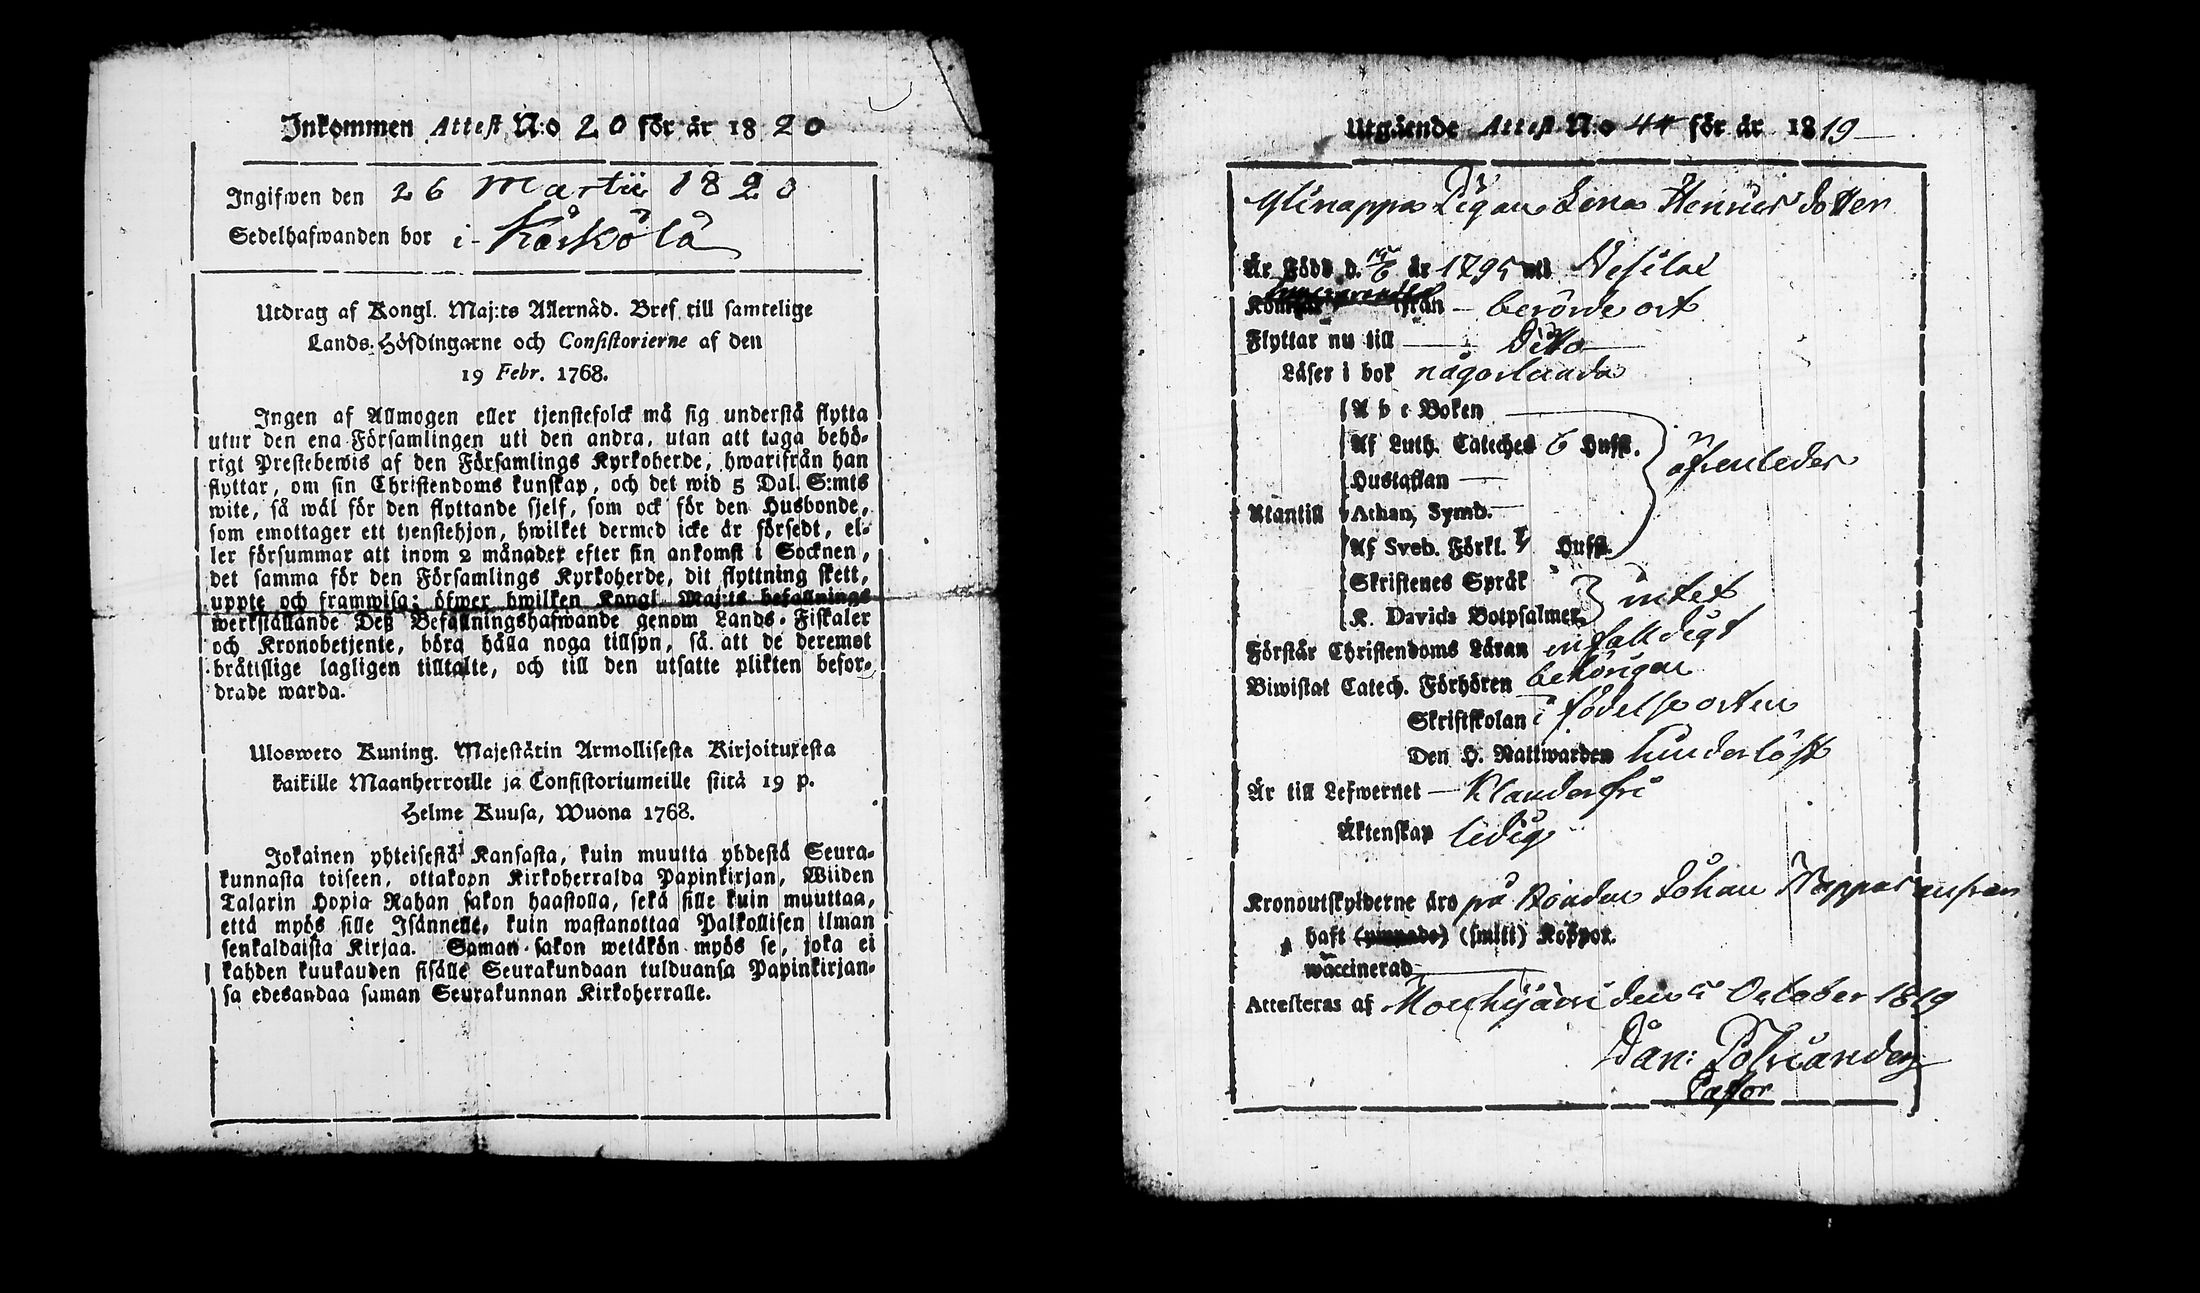 Inkommen Attest N:o 20 för år 1820
Ingifwen den 26 Martii 1820
Sedelhafwanden bor i Kärkölä
Utdrag af Kongl. Maj:ts Allernåd. Bref till samtelige
Lands-Höfdingarne och Consistorierne af den
19 Febr. 1768.
Ingen af Allmogen eller tjenstefolck må sig understå flytta
utur den ena Församlingen uti den andra, utan att taga behö-
rigt Prestebewis af den Församlings Kyrkoherde, hwarifrån han
flyttar, om sin Christendoms kunskap, och det wid 5 Dal. S:mts
wite, så wäl för den flyttande sjelf, som ock för den Husbonde,
som emottager ett tjenstehjon, hwilket dermed icke är försedt, el-
ler försummar att inom 2 månader efter sin ankomst i Socknen,
det samma för den Församlings Kyrkoherde, dit flyttning skett,
uppte och framwisa; öfwer hwilken Kongl. Maj:ts befallnings
werkställande Deß Befallningshafwande genom Lands-Fiskaler
och Kronobetjente, böra hålla noga tillsyn, så att de deremot
brätislige lagligen tilltalte, och till den utsatte plikten befor-
drade warda.
Uloswero Kuning. Majestätin Armollisesta Kirjoituxesta
kaikille Maanherroille ja Consistoriumeille siitä 19 p.
Helme Kuusa, Wuona 1768.
Jokainen yhteisestä Kansasta, kuin muutta yhdestä Seura-
kunnasta toiseen, ottakoon Kirkoherralda Papinkirjan, Wiiden
Talarin Hopia Rahan sakon haastolla, sekä sille kuin muuttaa,
että myös sille Isännelle, kuin wastanottaa Palkollisen ilman
senkaldaista Kirjaa. Saman sakon wetäkön myös se, joka ei
kahden kuukauden sisälle Seurakundaan tulduansa Papinkirjan-
sa edesandaa saman Seurakunnan Kirkoherralle.
Utgående Attest N:o 44 för år 1819
Pigan Lena Henrics dotter
Är Född d. år 1795 uti Vesilax
ifrån berörde ort
Flyttar nu till Ditto
Läser i bok någorlunda
A b c Boken
Af Luth. Cateches 6 Hufst.
Hustaflan
äfvenledes
Utantill Athan. Symb.
Af Sveb. Förkl. Hufst.
Skriftenes Språk
K. Davids Botpsalmer intet
Förstår Christendoms Läran enfalldigt
Biwistat Catech. Förhören behörigen
Skriftskolan i födelseorten
Den H. Nattwarden hinderlöst
Är till Lefwernet Klanderfri
Äktenskap ledig
Kronoutskylderne äro på Bonden Johan
haft (ympade) (smitt) Koppor.
waccinerad
Attesteras af Mouhijärvi den 5 October 1819
Dan: Polviander
Pastor